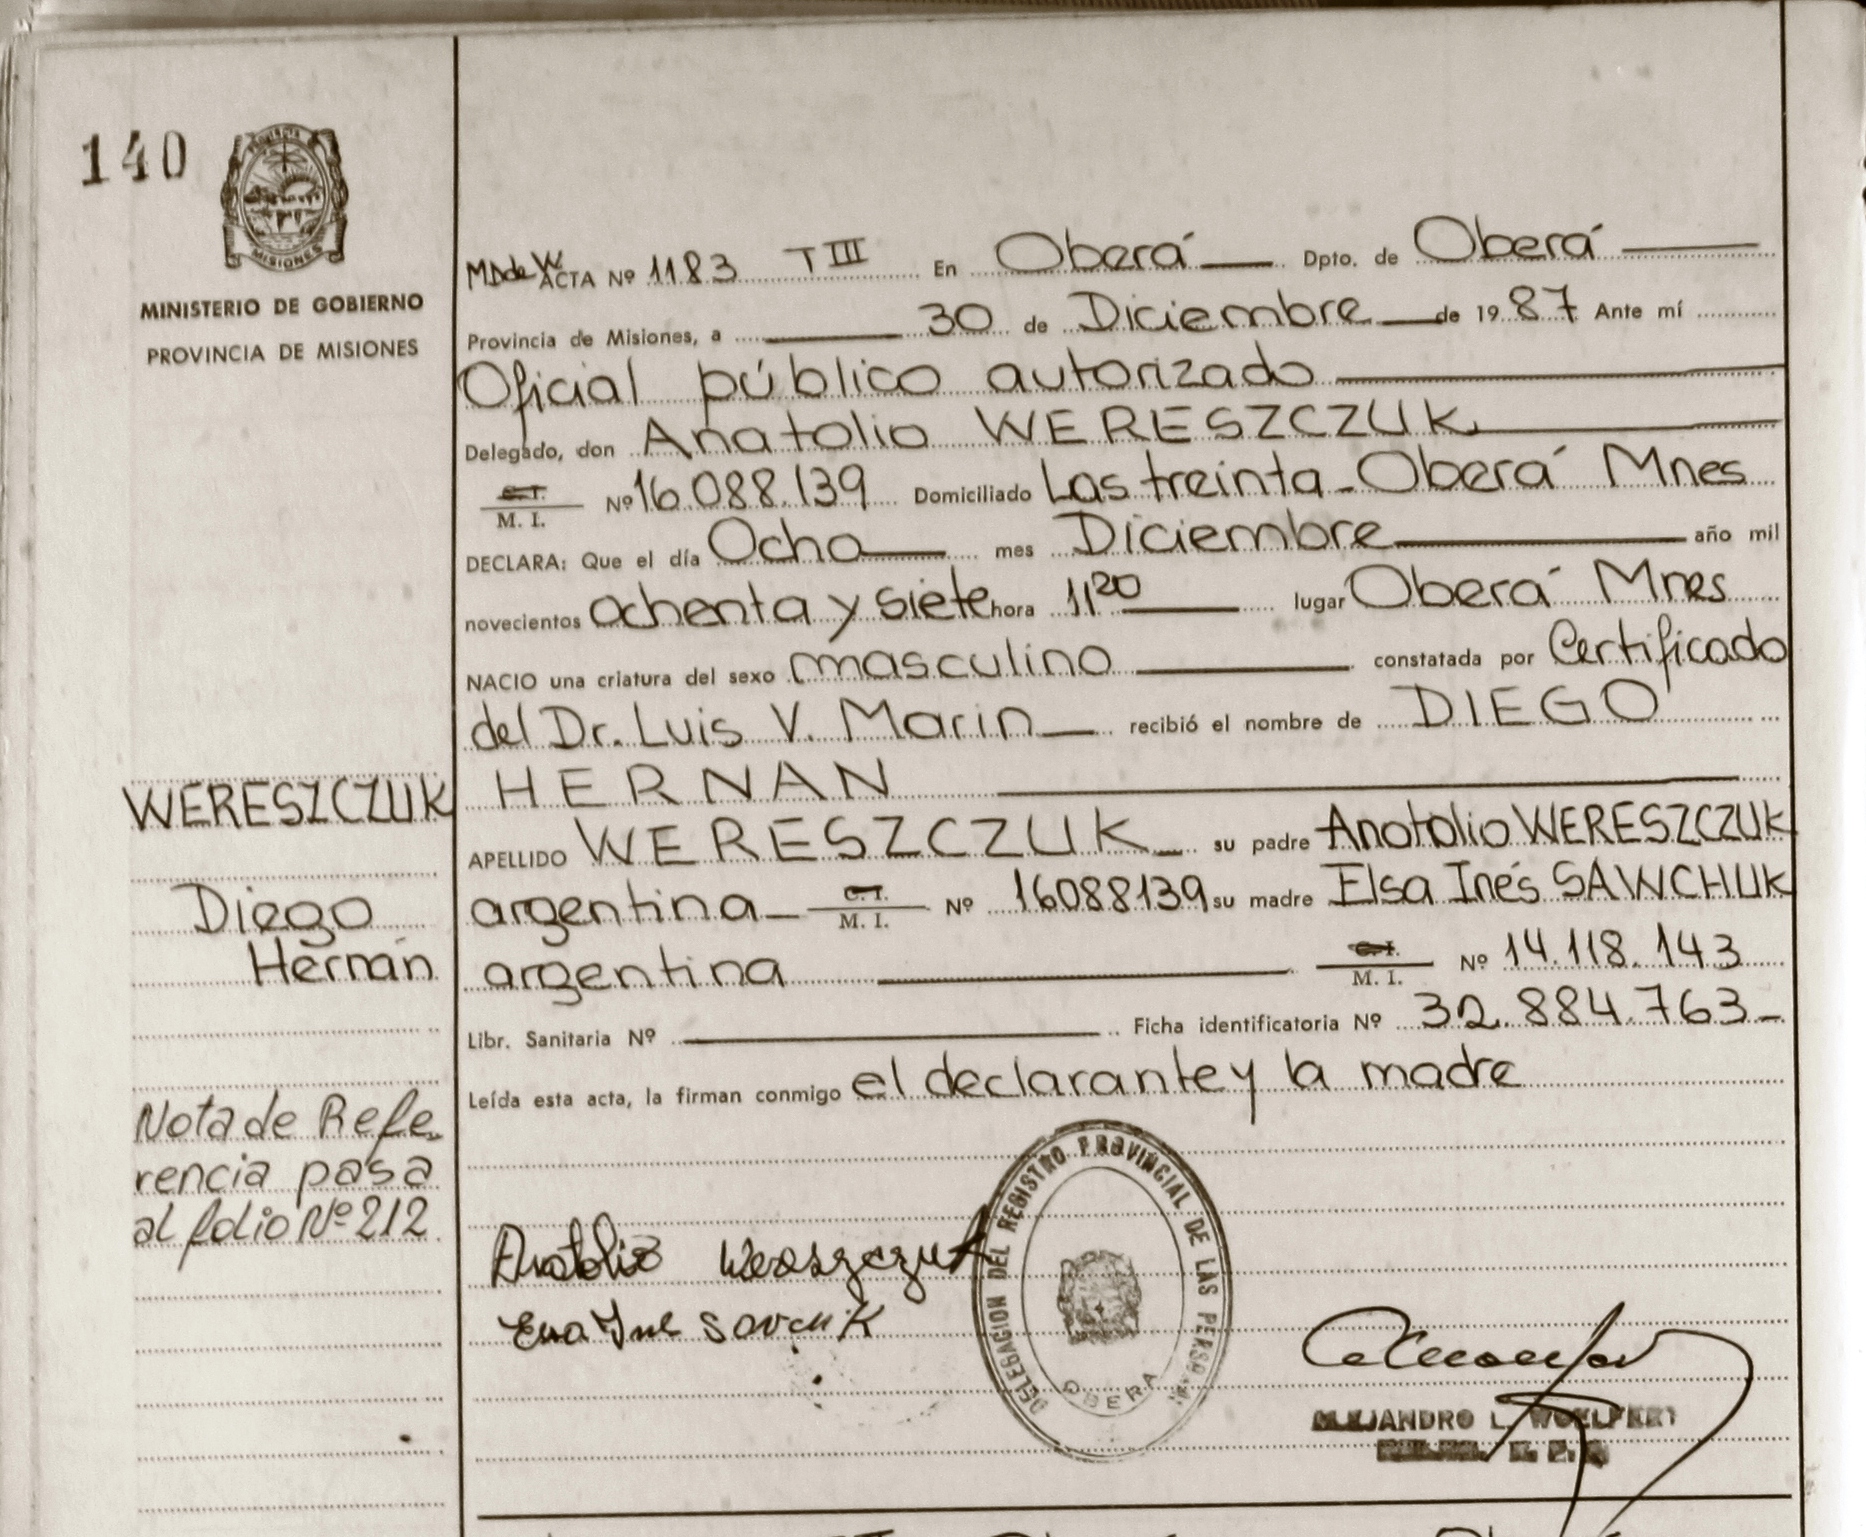 140
MISIONES
MINISTERIO DE GOBIERNO
PROVINCIA DE MISIONES
ACTA Nº 1183 T III En Oberá Dpto. de Oberá
Provincia de Misiones, a 30 de Diciembre de 1987 Ante mí
Oficial público autorizado
Delegado, don Anatolio WERESZCZUK
C.I. / M. I. Nº 16.088.139 Domiciliado Las treinta - Oberá Mnes
DECLARA: Que el día Ocho mes Diciembre año mil
novecientos ochenta y siete hora 11 20 lugar Oberá Mnes
NACIO una criatura del sexo masculino constatada por Certificado
del Dr. Luis V. Marin recibió el nombre de DIEGO
HERNAN
APELLIDO WERESZCZUK su padre Anatolio WERESZCZUK
argentina C.I. / M. I. Nº 16088139 su madre Elsa Inés SAWCHUK
argentina C.I. / M. I. Nº 14.118.143
Libr. Sanitaria Nº Ficha identificatoria Nº 32.884.763
Leída esta acta, la firman conmigo el declarante y la madre
WERESZCZUK
Diego
Hernán
Nota de Refe-
rencia pasa
al folio Nº 212
Anatolio Wereszczuk
DELEGACION DEL REGISTRO PROVINCIAL DE LAS PERSONAS
OBERA
ALEJANDRO L. WOELFERT